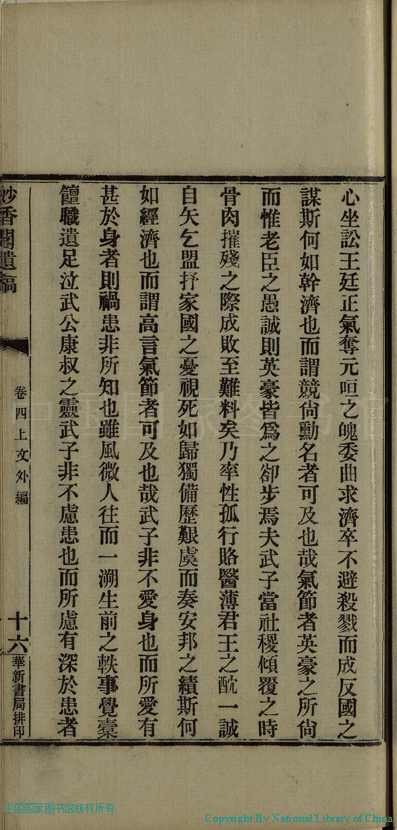 心坐訟王廷正氣奪元咺之魄委曲求濟卒不避殺戮而成反國之
謀斯何如幹濟也而謂競尙勳名者可及也哉氣節者英豪之所尙
而惟老臣之愚誠則英豪皆爲之卻步焉夫武子當社稷傾覆之時
骨肉摧殘之際成敗至難料矣乃率性孤行賂醫薄君王之酖一誠
自矢乞盟抒家國之憂視死如歸獨備歷艱虞而奏安邦之績斯何
如經濟也而謂高言氣節者可及也哉武子非不愛身也而所愛有
甚於身者則禍患非所知也雖風微人往而一溯生前之軼事覺橐
饘職遺足泣武公康叔之靈武子非不慮患也而所慮有深於患者
妙香閣遺稿
卷四上文外編
十六
華新書局排印
中国国家图书馆版权所有
Copyright By National Library of China